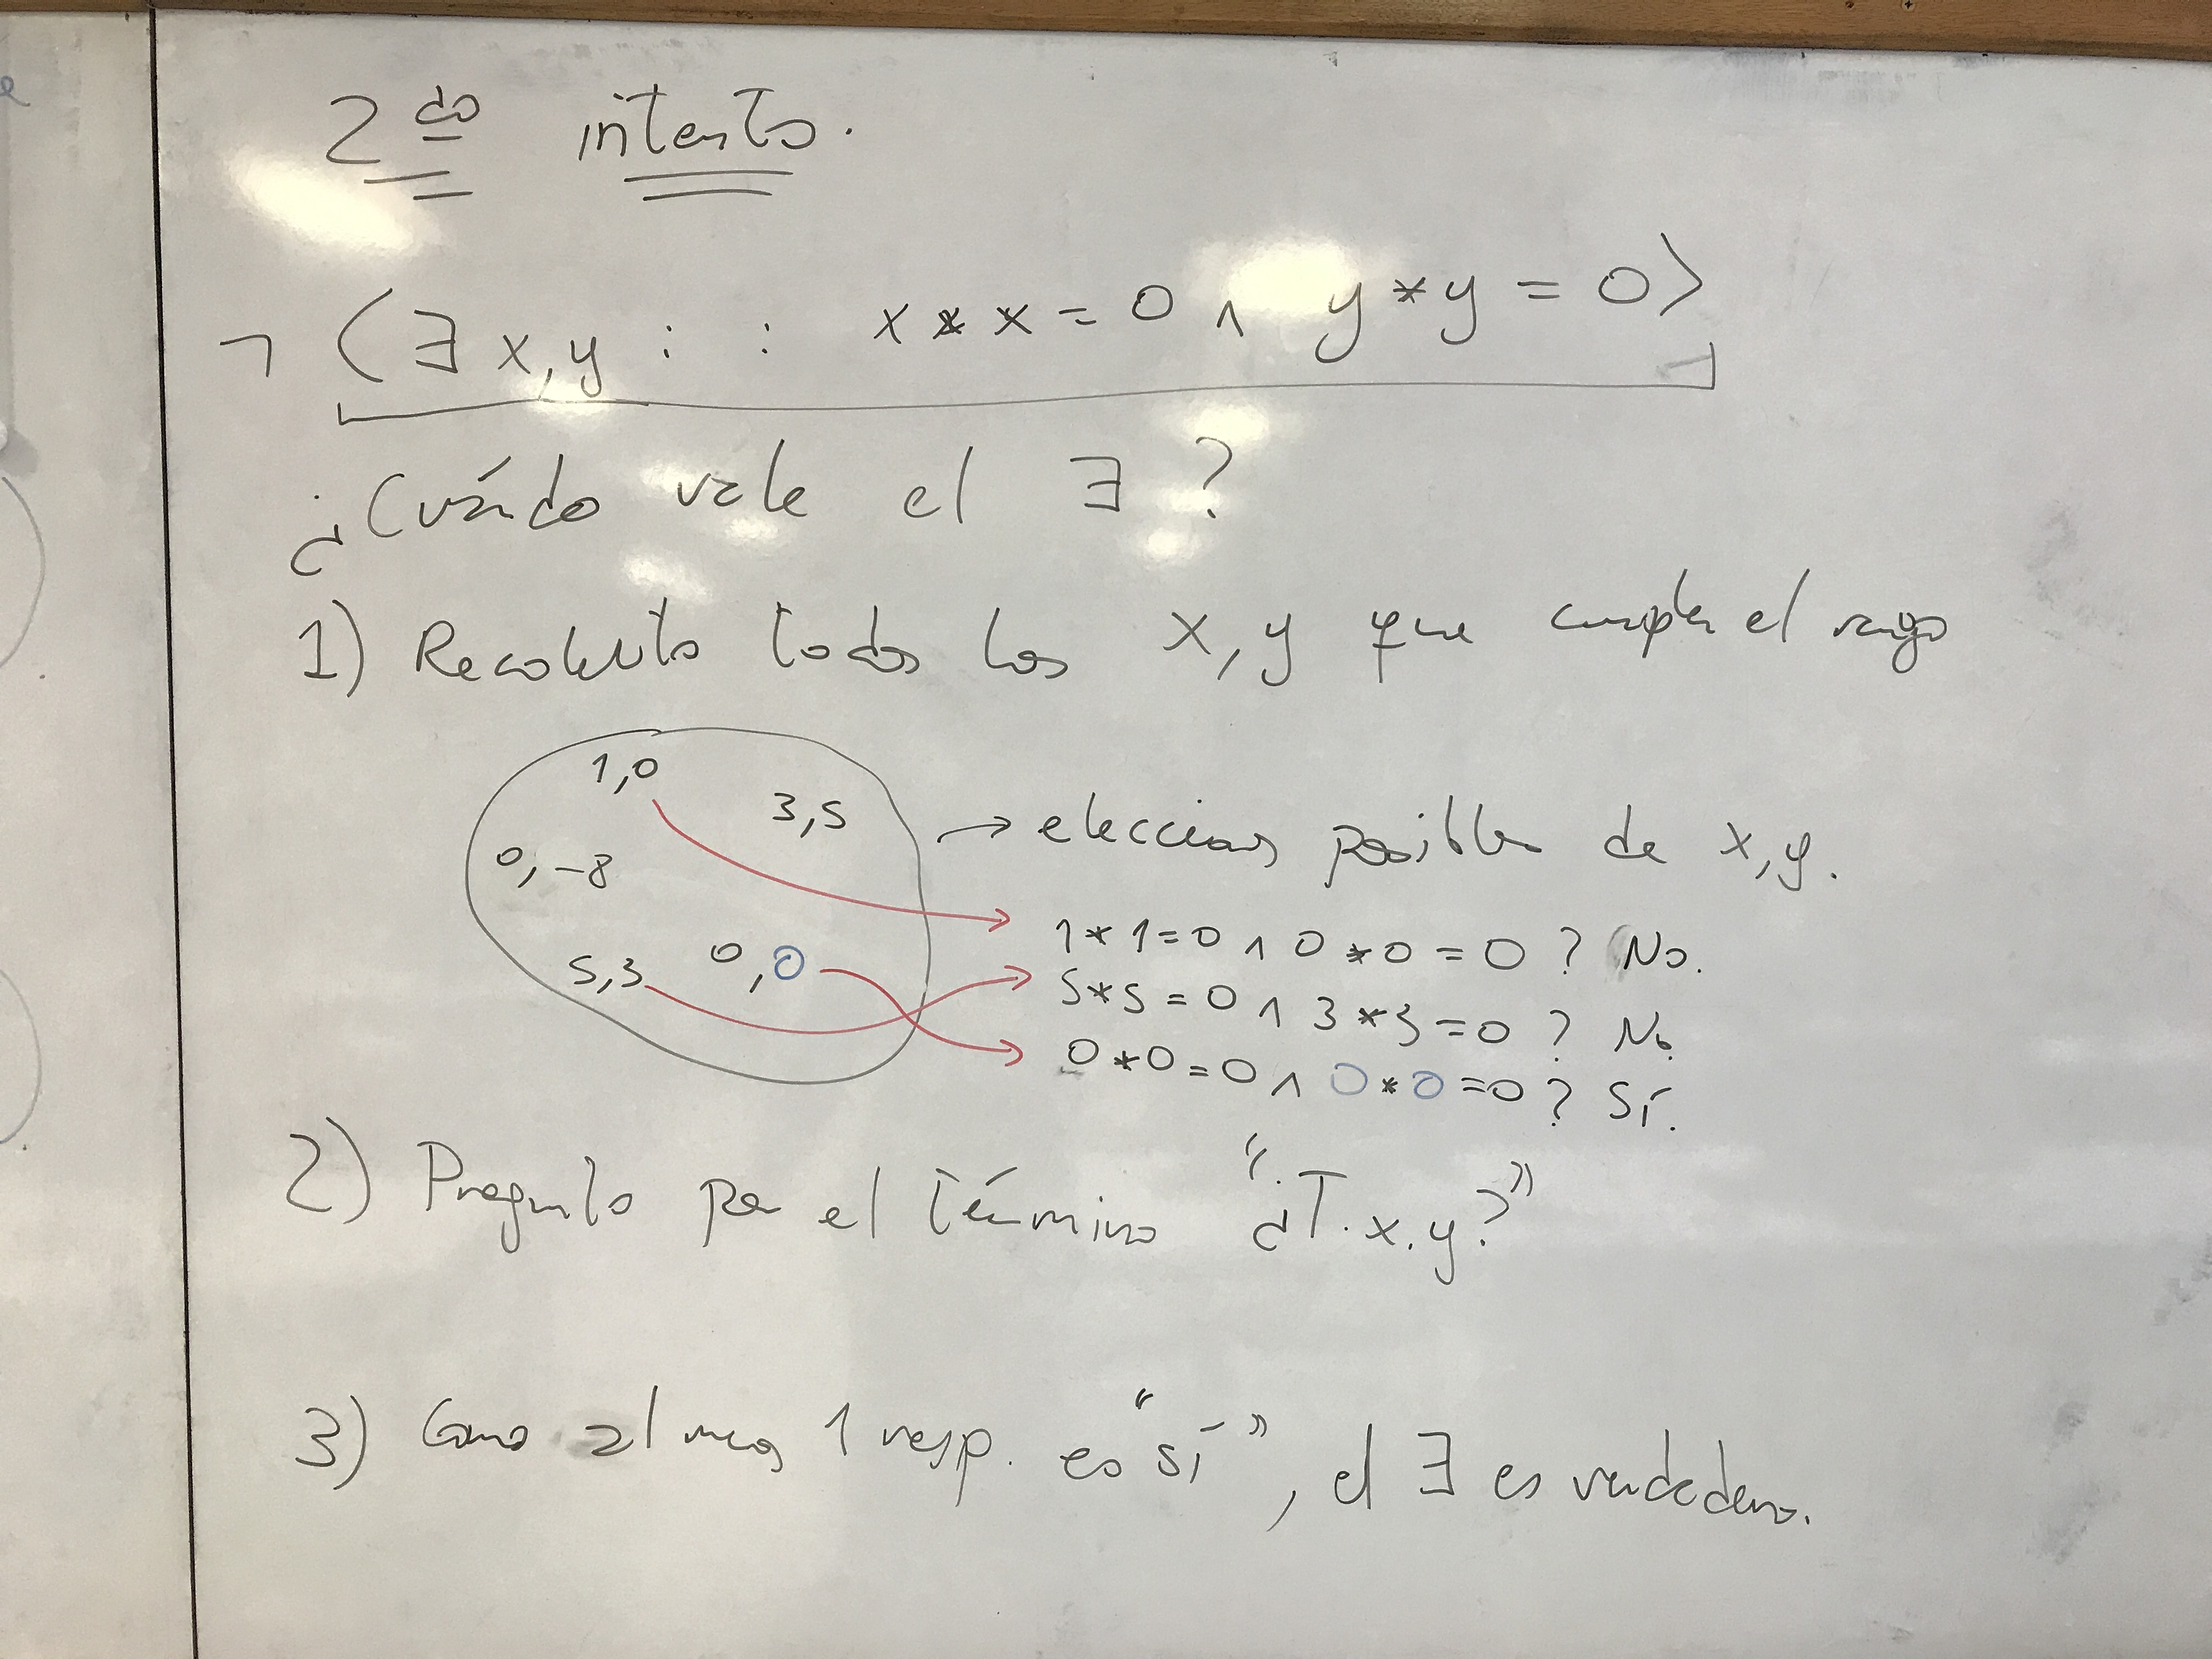 2do intento.
¬ ⟨∃ x,y : : x * x = 0 ∧ y * y = 0⟩
¿Cuándo vale el ∃ ?
1) Recolecto todos los x, y que cumplen el rango
1,0
3,5
0, -8
5,3
0,0
→ elecciones posibles de x,y.
1 * 1 = 0 ∧ 0 * 0 = 0 ? No.
5 * 5 = 0 ∧ 3 * 3 = 0 ? No.
0 * 0 = 0 ∧ 0 * 0 = 0 ? Sí.
2) Pregunto por el término "¿T.x.y?"
3) Como al menos 1 resp. es "sí", el ∃ es verdadero.